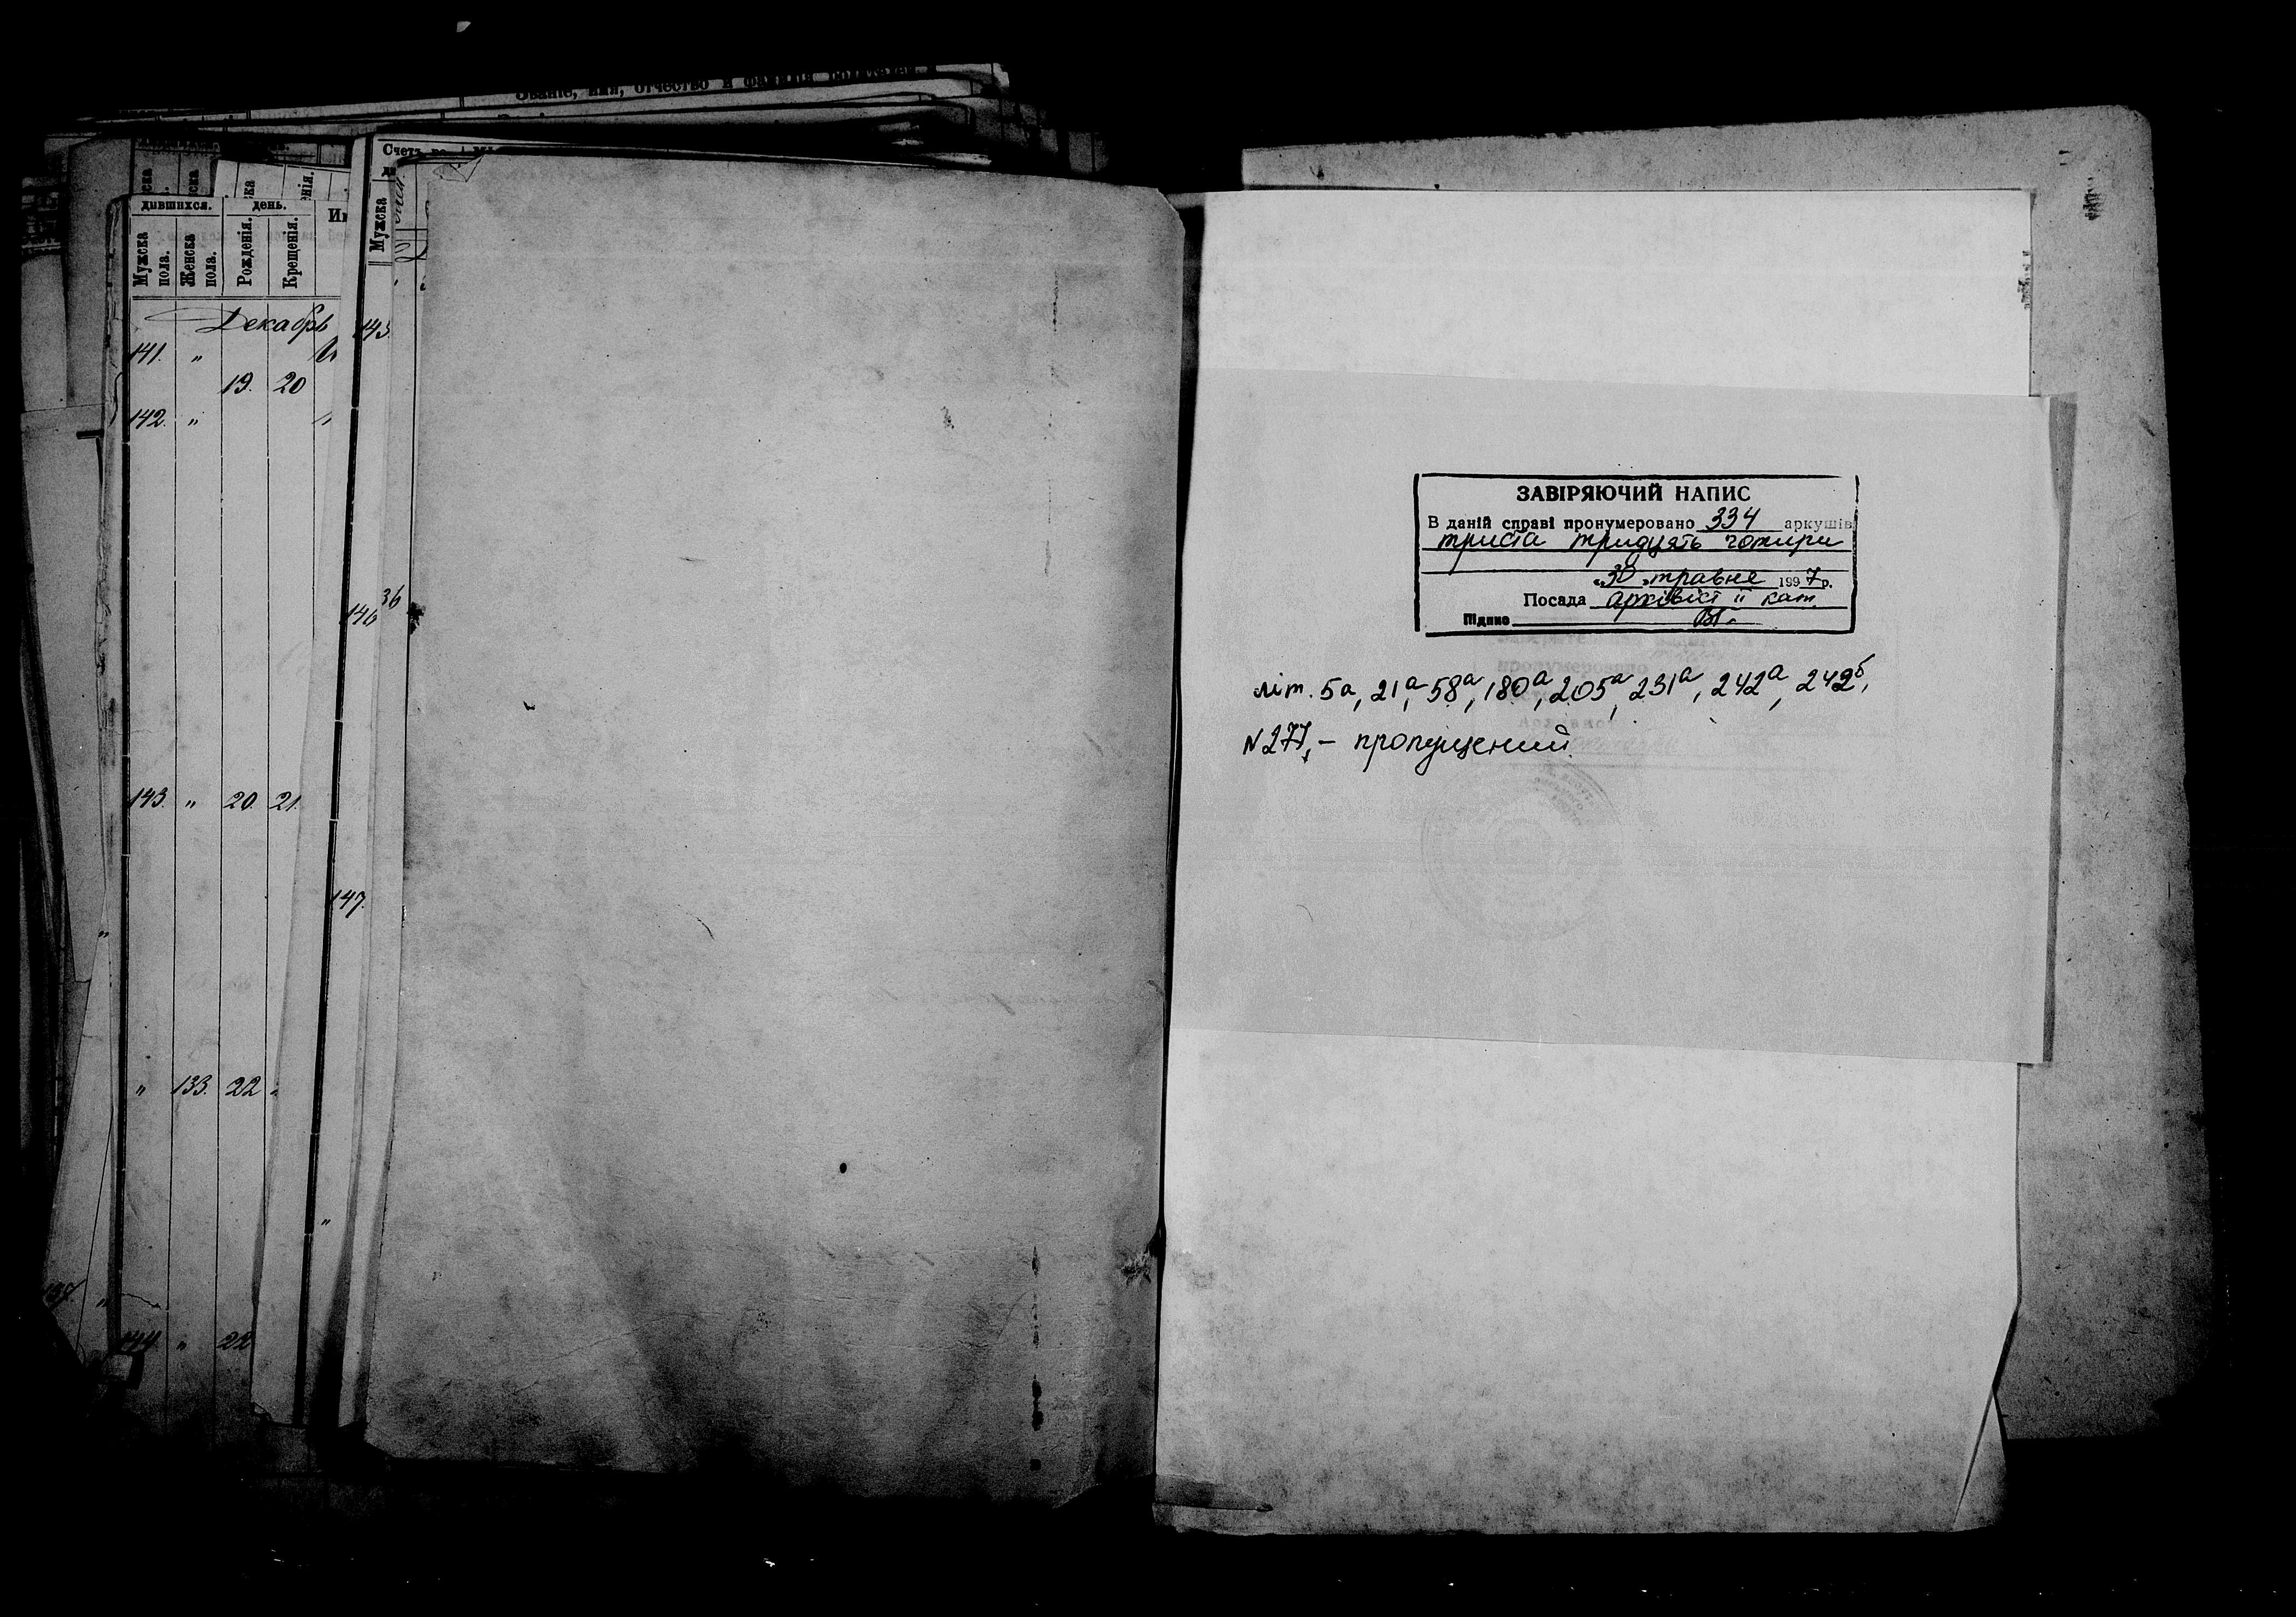 Званіе, имя, отчество и фамилія родителей,
Счетъ
дившихся.
день.
Мужска пола.
Женска пола.
Рожденія.
Крещенія.
Мужска
Декабрь
141. "
19. 20
142. "
143. " 20. 21.
" 133. 22
144. " 22
145.
146
36
147.
ЗАВІРЯЮЧИЙ НАПИС
В даній справі пронумеровано 334 аркушів
триста тридцять чотири
„30„ травня 1997 р.
Посада архівіст II кат.
Підпис
літ. 5а, 21а, 58а, 180а, 205а, 231а, 242а, 242б,
N 277, – пропущений.